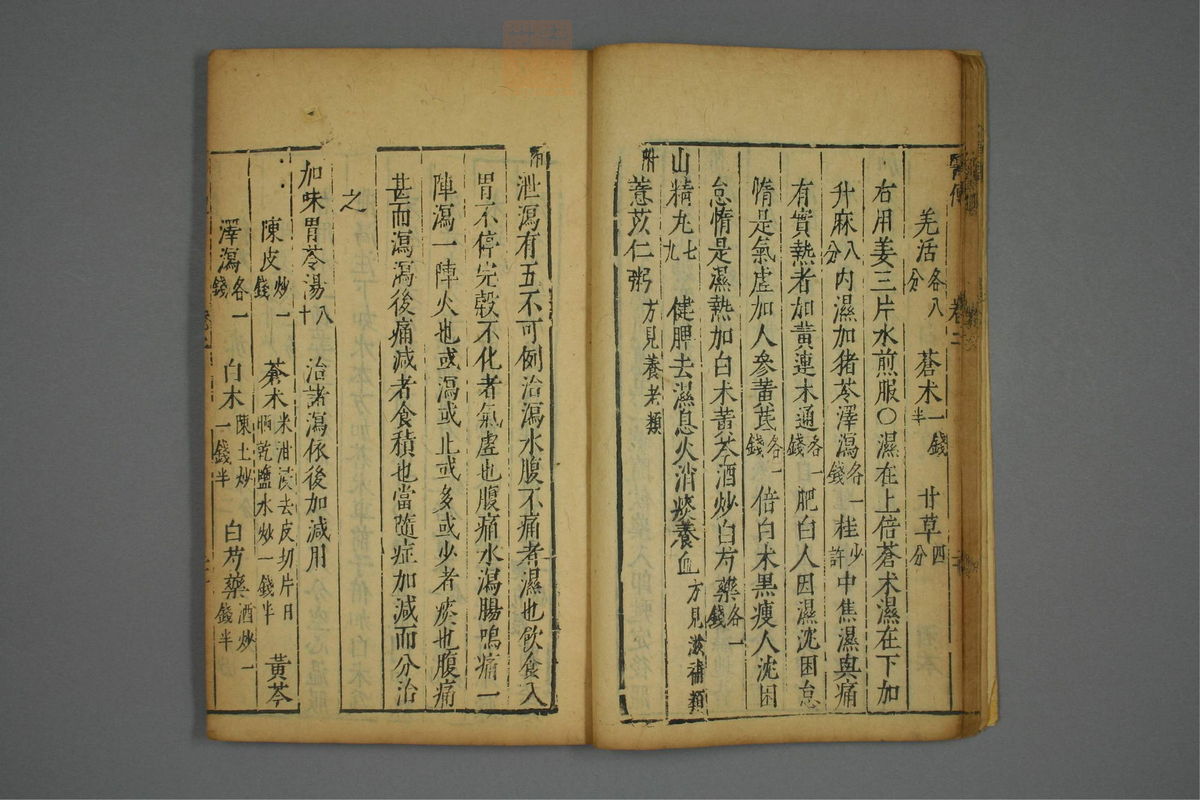 羌活各八分　蒼术一錢半　甘草四分
右用姜三片水煎服○濕在上倍蒼术濕在下加
升麻八分内濕加猪苓澤瀉各一錢桂少許中焦濕與痛
有實熱者加黄連木通各一錢肥白人因濕沈困怠
惰是氣虚加人參黄茋各一錢倍白术黒瘦人沈困
怠惰是濕熱加白术黄芩酒炒白芍藥各一錢
山精丸七九　健脾去濕息火消痰養血方見滋補類
附薏苡仁粥方見養老類
泄瀉有五不可例治瀉水腹不痛者濕也飲食入
胃不停完穀不化者氣虚也腹痛水瀉腸鳴痛一
陣瀉一陣火也或瀉或止或多或少者痰也腹痛
甚而瀉瀉後痛減者食積也當隨症加減而分治
之
加味胃苓湯八十　治諸瀉依後加減用
陳皮炒一錢　蒼术米泔浸去皮切片日晒乾鹽水炒一錢半　黃芩
澤瀉各一錢　白术陳土炒一錢半　白芍藥酒炒一錢半
醫便
卷二